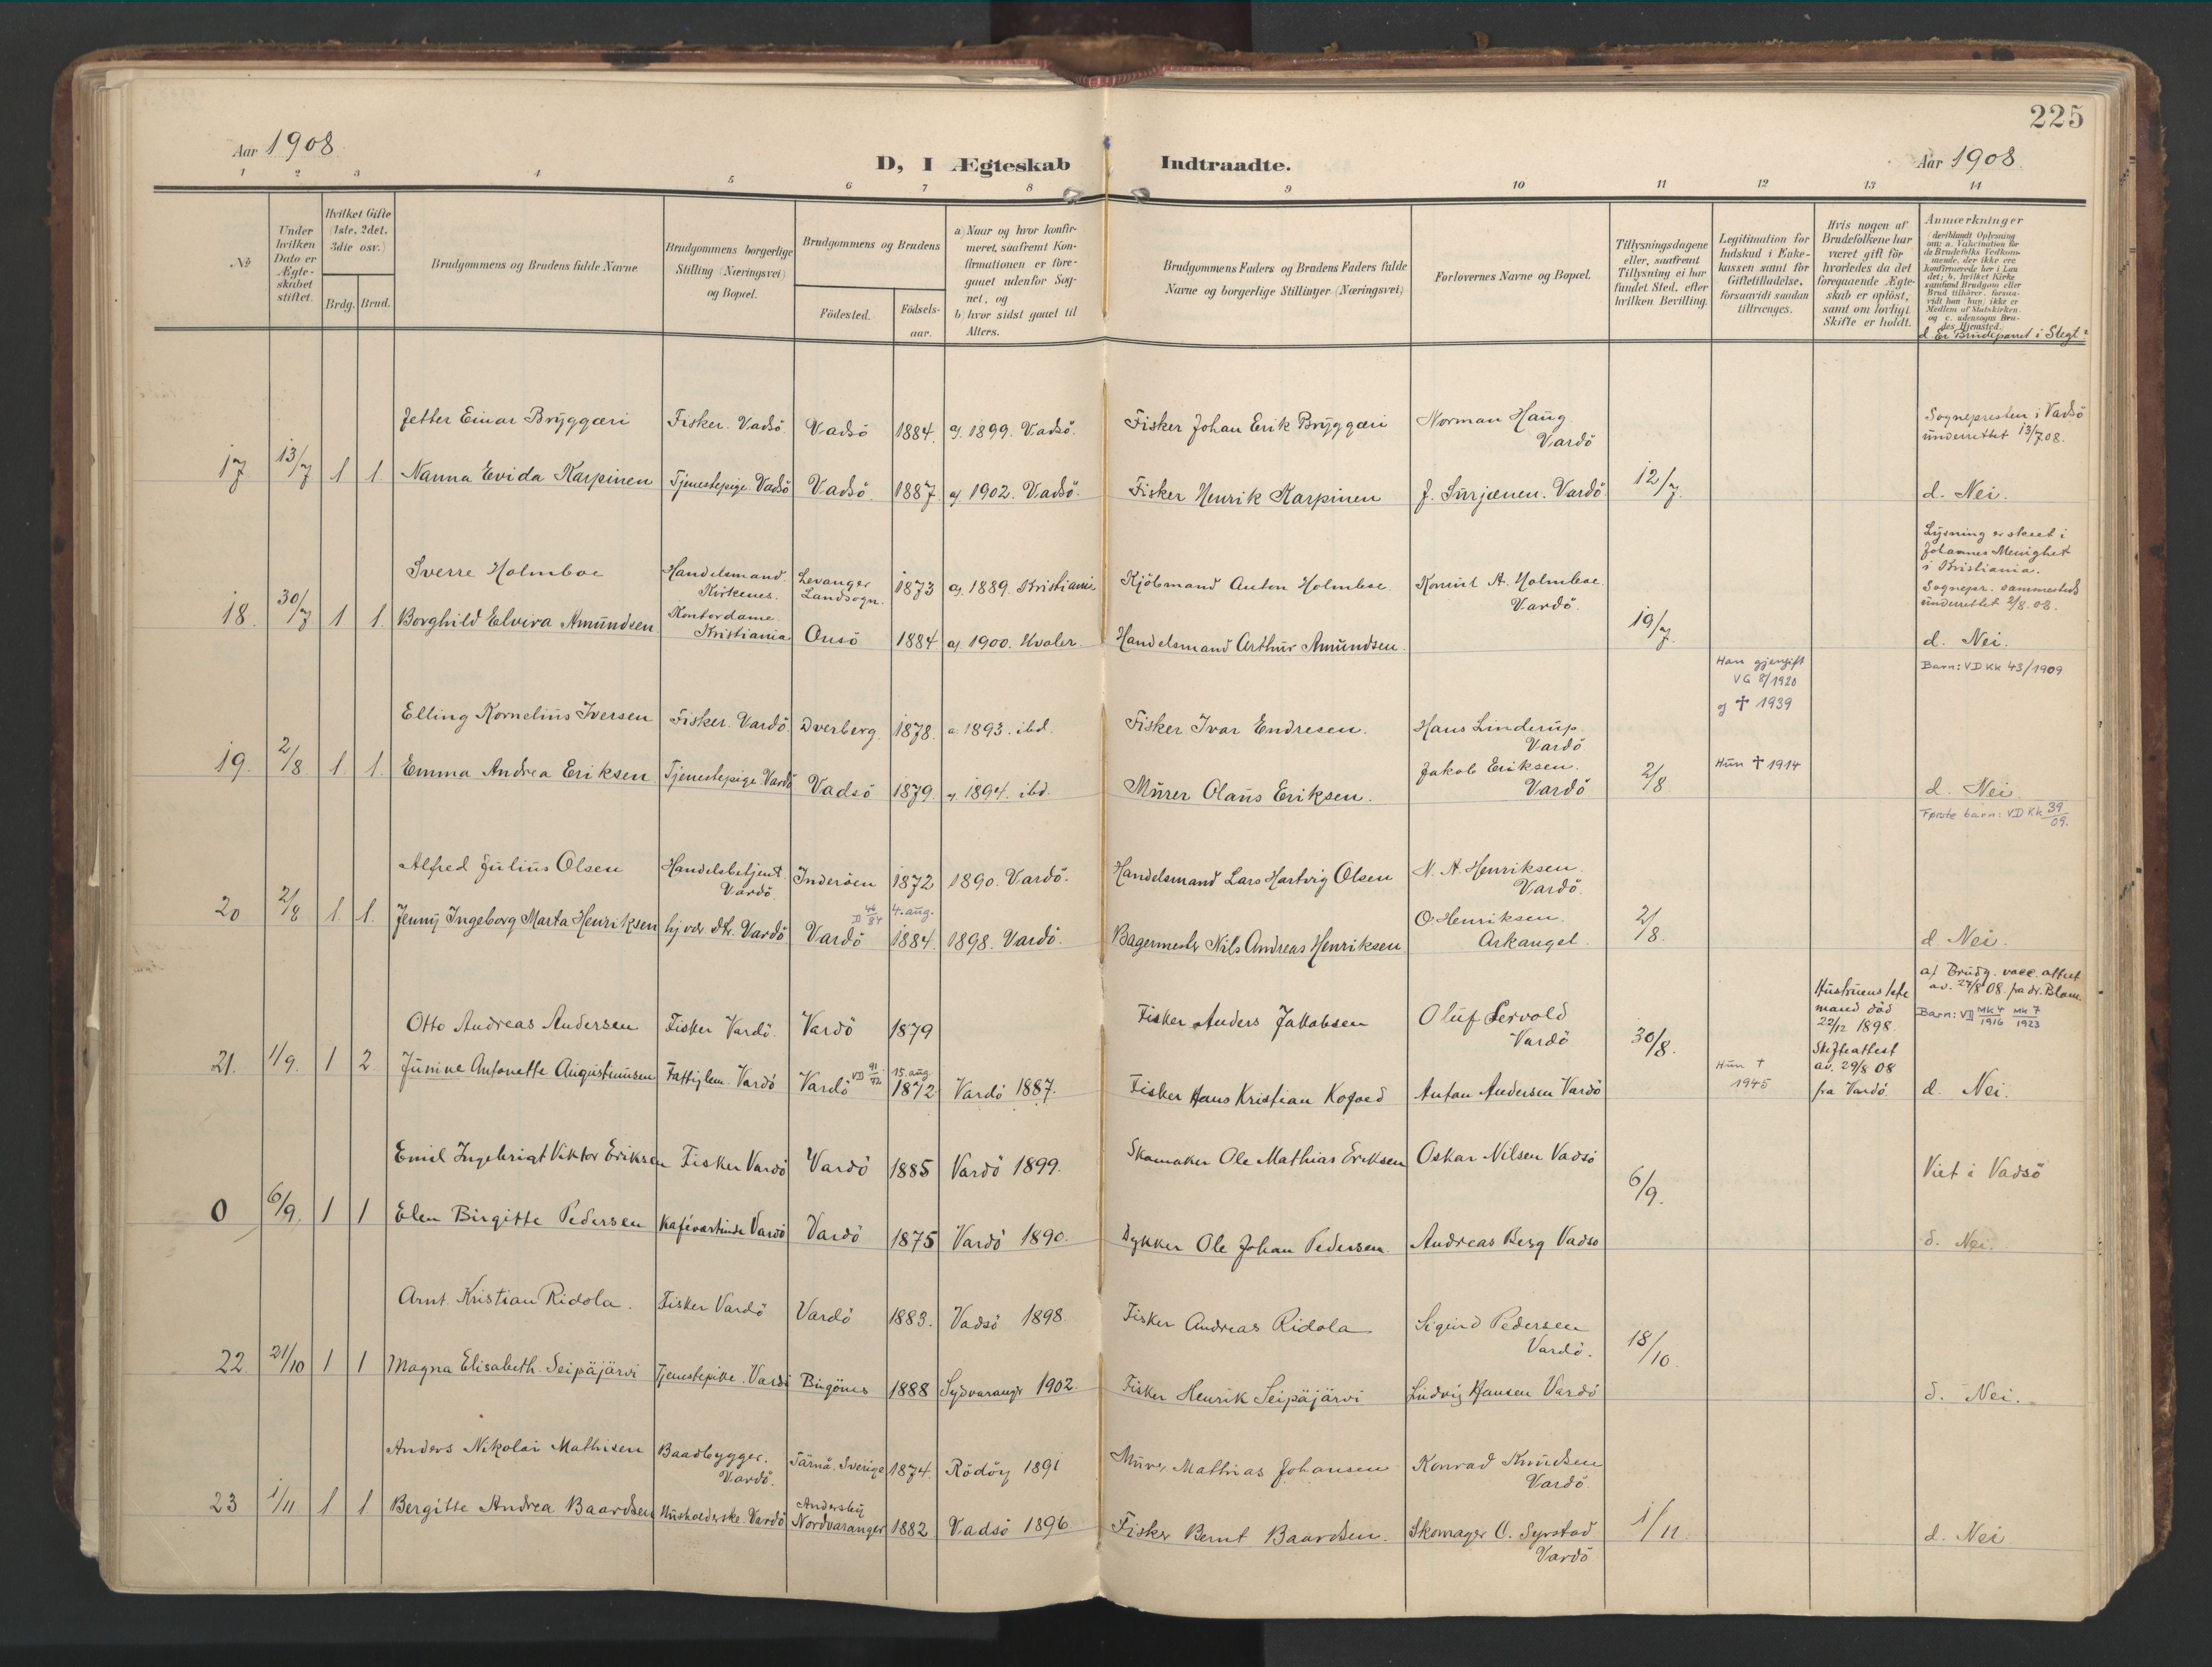 225
Aar 1908.
D, I Ægteskab Indtraadte.
Aar 1908.
1 2 3 4 5 6 7 8 9 10 11 12 13 14
№
Under hvilken Dato er Ægteskabet stiftet.
Hvilket Gifte (1ste, 2det, 3die osv.)
Brdg. Brud.
Brudgommens og Brudens fulde Navne
Brudgommens borgerlige Stilling (Næringsvei) og Bopæl.
Brudgommens og Brudens
Födested.
Födsels-aar.
a) Naar og hvor konfirmeret, saafremt Konfirmationen er foregaaet udenfor Sognet, og
b) hvor sidst gaaet til Alters.
Brudgommens Faders og Brudens Faders fulde Navne og borgerlige Stillinger (Næringsvei)
Forlovernes Navne og Bopæl.
Tillysningsdagene eller, saafremt Tillysning ei har fundet Sted, efter hvilken Bevilling.
Legitimation for Indskud i Enkekassen samt for Giftetilladelse, forsaavidt saadan tiltrænges.
Hvis nogen af Brudefolkene har været gift för hvorledes da det foregaaende Ægteskab er oplöst, samt om lovligt Skifte er holdt.
Anmærkninger
(deriblandt Oplysning om: a. Vakcination for de Brudefolks Vedkommende, der ikke ere konfirmerede her i Landet; b. hvilket Kirkesamfund Brudgom eller Brud tilhörer, forsaavidt han (hun) ikke er Medlem af Statskirken og c. udensogns Brudes Hjemsted.)
d. Er Brudeparret i Slegt?
Jetter Einar Bryggæri Fisker. Vadsö. Vadsö 1884. a). 1899. Vadsö. Fisker Johan Erik Bryggæri Norman Haug Vardö Sognepresten i Vadsö underrettet 13/7 08.
17 13/7 1 1. Nanna Evida Karpinen Tjenestepige. Vadsö Vadsö. 1887. a) 1902. Vadsö. Fisker Henrik Karpinen J. Surjænen. Vardö 12/7. d. Nei.
Sverre Holmboe Handelsmand. Kirkenes. Levanger Landsogn. 1873 a). 1889. Kristiania Kjöbmand Anton Holmboe. Konsul A. Holmboe. Vardö. Lysning er skeet i Johannes Menighet i Kristiania. Sognepr. sammesteds underrettet 2/8. 08.
18. 30/7 1 1. Borghild Elvira Amundsen Kontordame. Kristiania Onsö 1884 a). 1900. Hvaler. Handelsmand Arthur Amundsen. 19/7. d. Nei.
Barn: VD KK 43/1909
Han gjengift VG 8/1920 og ✝ 1939
Elling Kornelius Iversen Fisker. Vardö. Dverberg. 1878. a. 1893. ibd. Fisker Ivar Endresen. Hans Linderup. Vardö
19. 2/8. 1. 1. Emma Andrea Eriksen Tjenestepige. Vardö Vadsö 1879. a). 1894. ibd. Murer Olaus Eriksen. Jakob Eriksen. Vardö 2/8 Hun ✝ 1914 d. Nei.
Første barn: VD KK 39/09.
Alfred Julius Olsen Handelsbetjent. Vardö Inderöen 1872 1890. Vardö. Handelsmand Lars Hartvig Olsen N. A. Henriksen. Vardö.
20 2/8 1. 1. Jenny Ingeborg Marta Henriksen hjvær. dtr. Vardö D 46/84 Vardö 4. aug. 1884. 1898. Vardö. Bagermester Nils Andreas Henriksen O Henriksen. Arkangel. 2/8. d Nei.
a) Brudg. vacc. attest av. 27/8 08. fra dr. Blom
Barn: VD MK 4 1916 MK 7 1923
Otto Andreas Andersen Fisker Vardö. Vardö 1879 Fisker Anders Jakobsen Oluf Lervold Vardö Hustruens 1ste mand död 22/12 1898.
21. 1/9. 1 2 Junine Antonette Augustinusen Fattiglem. Vardö Vardö VD 91/72 15. aug. 1872 Vardö 1887. Fisker Hans Kristian Kofoed Anton Andersen Vardö 30/8. Hun ✝ 1945 Skifteattest av. 29/8 08 fra Vardö d. Nei.
Emil Ingebrigt Viktor Eriksen Fisker Vardö Vardö 1885 Vardö 1899. Skomaker Ole Mathias Eriksen Oskar Nilsen Vadsö Viet i Vadsö
0 6/9. 1 1 Elen Birgitte Pedersen Kafévertinde Vardö Vardö 1875 Vardö 1890. Dykker Ole Johan Pedersen. Andreas Berg Vadsö 6/9. d. Nei.
Arnt. Kristian Ridola. Fisker Vardö Vardö 1883. Vadsö 1898. Fisker Andreas Ridola Sigurd Pedersen Vardö.
22. 21/10 1 1 Magna Elisabeth. Seipäjärvi Tjenestepike. Vardö Bugönes 1888 Sydvaranger 1902. Fisker Henrik Seipäjärvi Ludvig Hansen Vardö 18/10. d. Nei.
Anders Nikolai Mathisen Baadbygger. Vardö. Tärnå. Sverige 1874. Rödöy 1891 Murer Mathias Johansen Konrad Knudsen Vardö
23 1/11 1 1. Bergitte Andrea Baardsen Husholderske. Vardö Andersby Nordvaranger 1882 Vadsö 1896. Fisker Bernt Baardsen. Skomager O. Syrstad Vardö 1/11. d. Nei